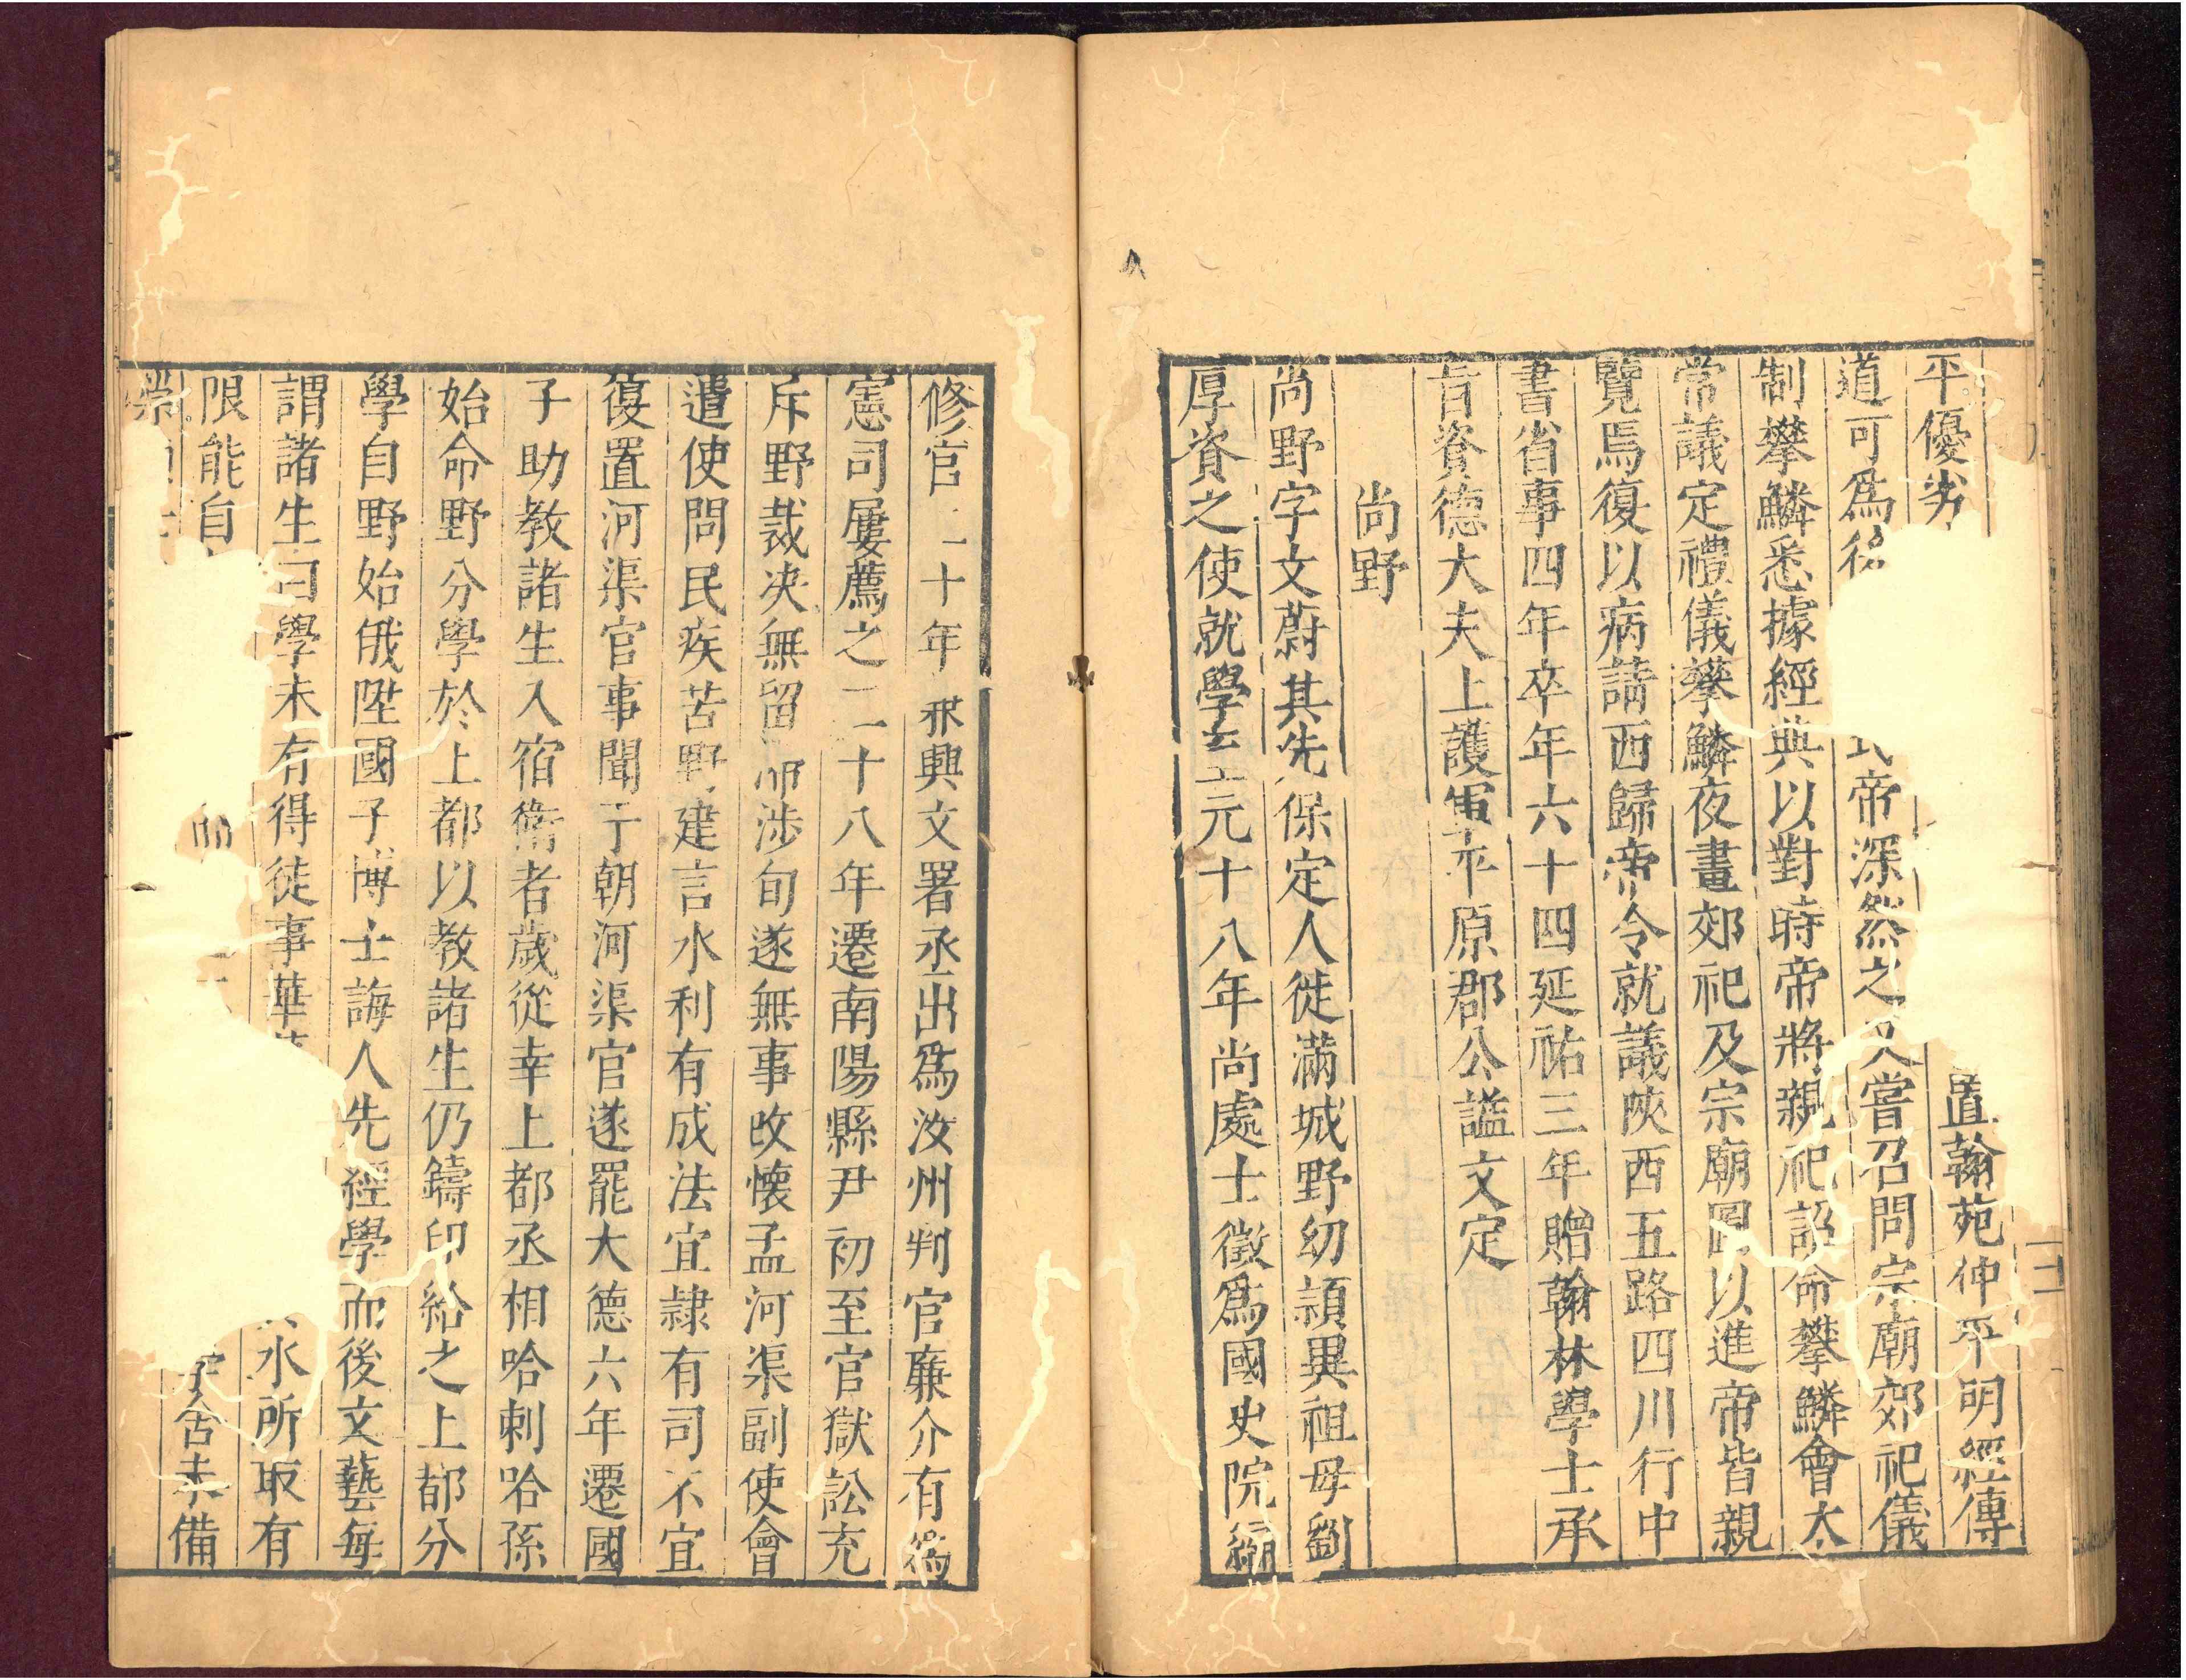 平優劣置翰苑仲平明經傳
道可為民帝深然之又嘗召問宗廟郊祀儀
制攀鱗悉據經典以對時帝將親祀詔命攀鱗會太
常議定禮儀攀鱗夜畫郊祀及宗廟圖以進帝皆親
覽焉復以病請西歸帝令就議陜西五路四川行中
書省事四年卒年六十四延祐三年贈翰林學士承
旨資德大夫上護軍平原郡公謚文定
尚野
尚野字文蔚其先保定人徙滿城野幼頴異祖母劉
厚資之使就學至元十八年尚處士徵爲國史院編
修官二十年兼興文署丞出爲汝州判官廉介有爲
憲司屢薦之二十八年遷南陽縣尹初至官獄訟充
斥野裁决無留涉旬遂無事改懷孟河渠副使會
遣使問民疾苦野建言水利有成法宜隷有司不宜
復置河渠官事聞于朝河渠官遂罷大德六年遷國
子助教諸生入宿衛者歲從幸上都丞相哈剌哈孫
始命野分學於上都以教諸生仍鑄印給之上都分
學自野始俄陞國子博士誨人先經學而後文藝每
謂諸生曰學未有得徒事華水所取有
限能自學舍未備